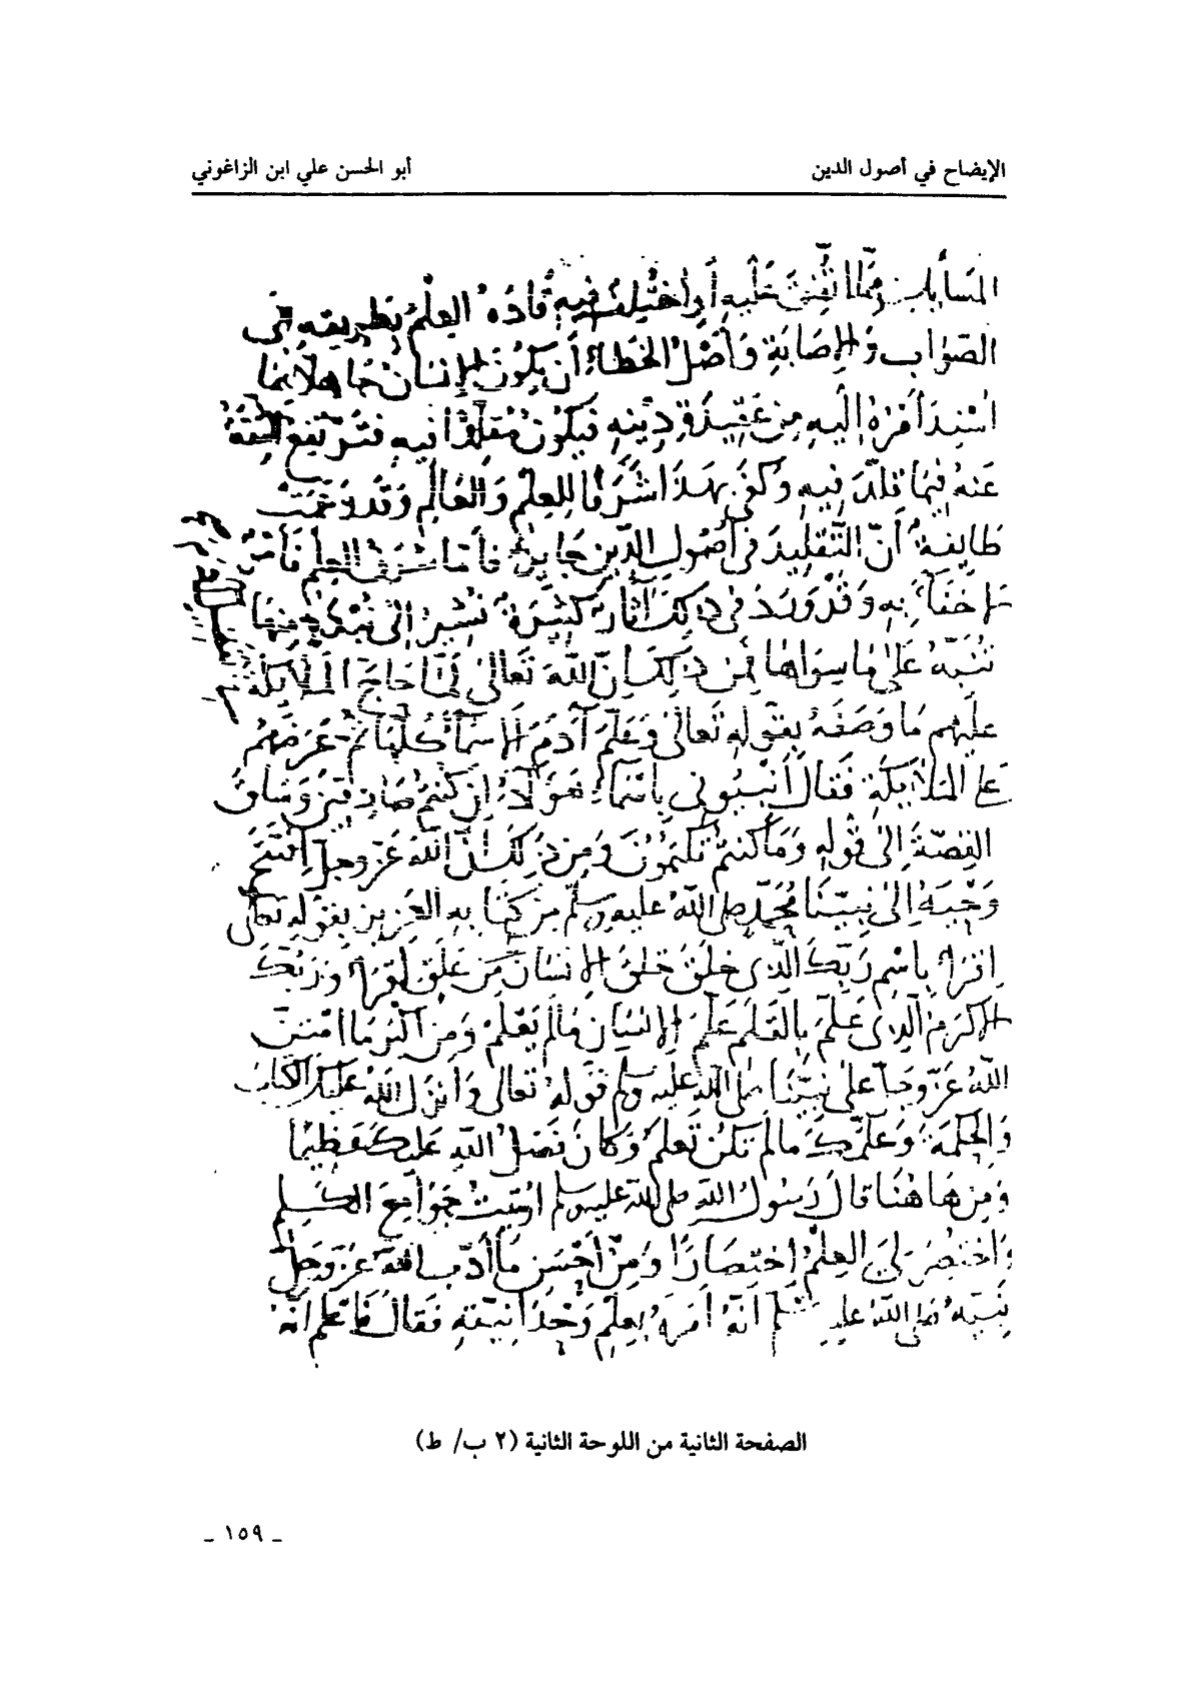 الإيضاح في أصول الدين
أبو الحسن علي ابن الزاغوني
المسايل مما اتفق عليه أو اختلف فيه قاده العلم بطريقه إلى
الصواب والإصابة وأصل الخطاء أن يكون الإنسان جاهلا بما
استند أمره إليه من عقيدة دينه فيكون مقلدا فيه فترتفع الثقة
عنه فيما قلد فيه وكفى بهذا شرفا للعلم والعالم وقد زعمت
طايفة أن التقليد في أصول الدين جايز فأما شرف العلم فأمر
لا خفاء به وقد ورد في ذلك آثار كثيرة نشير إلى نبذة منها
تنبه على ما سواها فمن ذلك إن الله تعالى لما حاج الملايكة
عليهم ما وصفه بقوله تعالى وعلم آدم الأسماء كلها ثم عرضهم
على الملايكة فقال أنبيوني بأسماء هؤلاء إن كنتم صادقين وساق
القصة إلى قوله وما كنتم تكتمون ومن ذلك أن الله عز وجل افتتح
وحيه إلى نبينا محمد صلى الله عليه وسلم من كتابه العزيز بقوله تعالى
اقرأ باسم ربك الذي خلق خلق الإنسان من علق اقرأ وربك
الأكرم الذي علم بالقلم علم الإنسان ما لم يعلم ومن أكبر ما امتن
الله عز وجل على نبينا صلى الله عليه وسلم قوله تعالى وأنزل الله عليك الكتاب
والحكمة وعلمك ما لم تكن تعلم وكان فضل الله عليك عظيما
ومن هاهنا قال رسول الله صلى الله عليه وسلم أوتيت جوامع الكلم
واختصر لي العلم اختصارا ومن أحسن ما أدب الله عز وجل
نبيه صلى الله عليه وسلم أنه أمره بعلم وحدانيته فقال فاعلم أنه
الصفحة الثانية من اللوحة الثانية (٢ ب/ ط)
_ ١٥٩ _